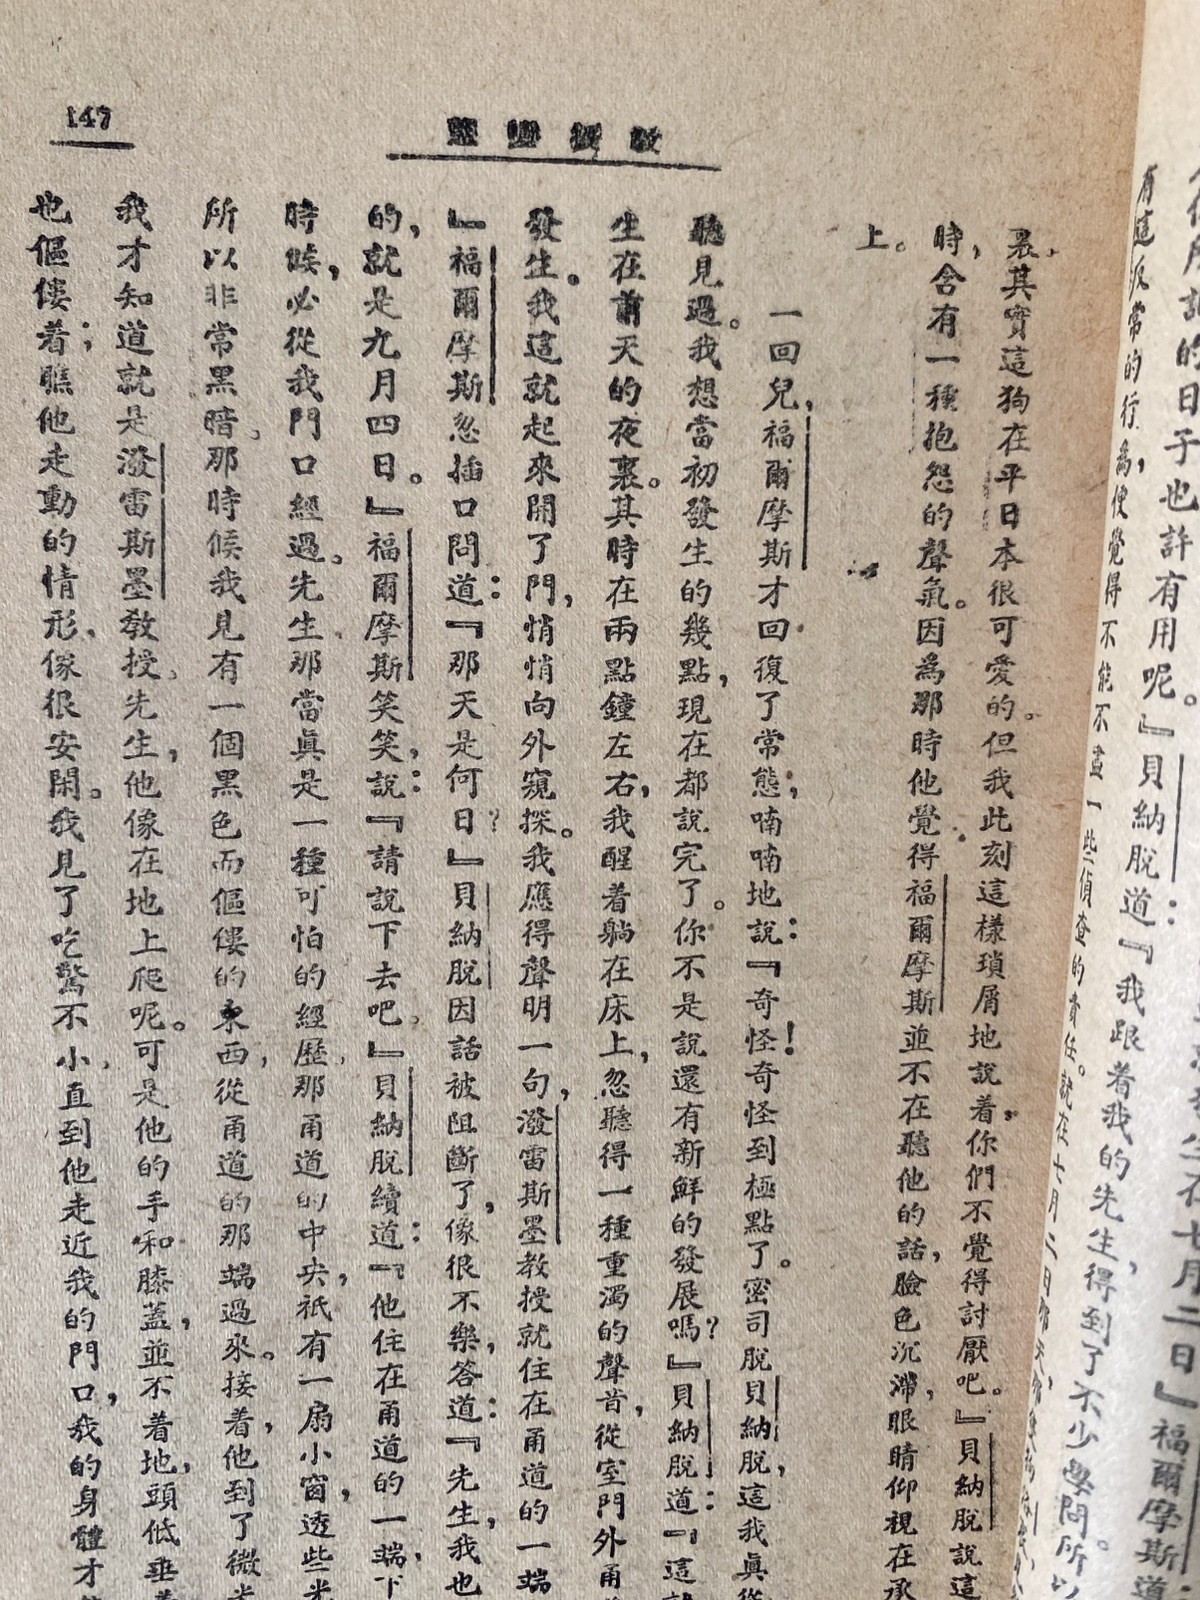 147
教授變猿
有這眅常的行爲,便覺得不能不盡一些偵查的責任。就在七月二日那天,
裏,其實這狗在平日本很可愛的。但我此刻這樣瑣屑地說着,你們不覺得討厭吧。』貝納脫說這
時,含有一種抱怨的聲氣。因爲那時他覺得福爾摩斯並不在聽他的話,臉色沉滯,眼睛仰視在承
上。
一回兒,福爾摩斯才回復了常態;喃喃地說:『奇怪!奇怪到極點了。密司脫貝納脫,這我眞從
聽見過。我想當初發生的幾點,現在都說完了。你不是說還有新鮮的發展嗎?』貝納脫道:『這就
生在前天的夜裏。其時在兩點鐘左右,我醒着躺在床上,忽聽得一種重濁的聲音,從室門外甬
發生。我這就起來開了門,悄悄向外窺探。我應得聲明一句,潑雷斯墨教授就住在甬道的一端
』福爾摩斯忽插口問道:『那天是何日?』貝納脫因話被阻斷了,像很不樂,答道:『先生,我也
的,就是九月四日。』福爾摩斯笑笑,說:『請說下去吧。』貝納脫續道:『他住在甬道的一端,下
時候,必從我門口經過。先生,那當眞是一種可怕的經歷,那甬道的中央,祇有一扇小窗,透些光
所以非常黑暗。那時候我見有一個黑色而傴僂的東西,從甬道的那端過來。接着,他到了微光
我才知道就是潑雷斯墨教授。先生,他像在地上爬呢。可是他的手和膝蓋,並不着地,頭低垂着
也傴僂着;瞧他走動的情形,像很安閑。我見了吃驚不小,直到他走近我的門口,我的身體才